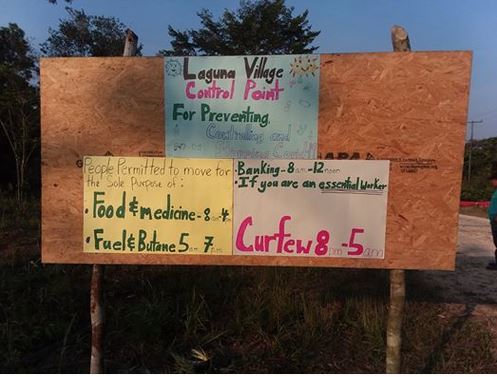 Laguna Village
Control Point
For Preventing,
Controlling and
People Permitted to move for
the Sole Purpose of:
• Food & medicine - 8am 4pm
• Fuel & Butane 5am 7pm
• Banking - 8am - 12noon
• If you are an essential worker
Curfew 8pm - 5am